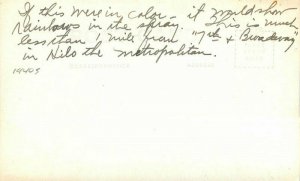 If this were in color - it would show
Rainbows in the spray. This is much
less than 1/2 mile from "7th & Broadway"
in Hilo the metropolitan.
1940s